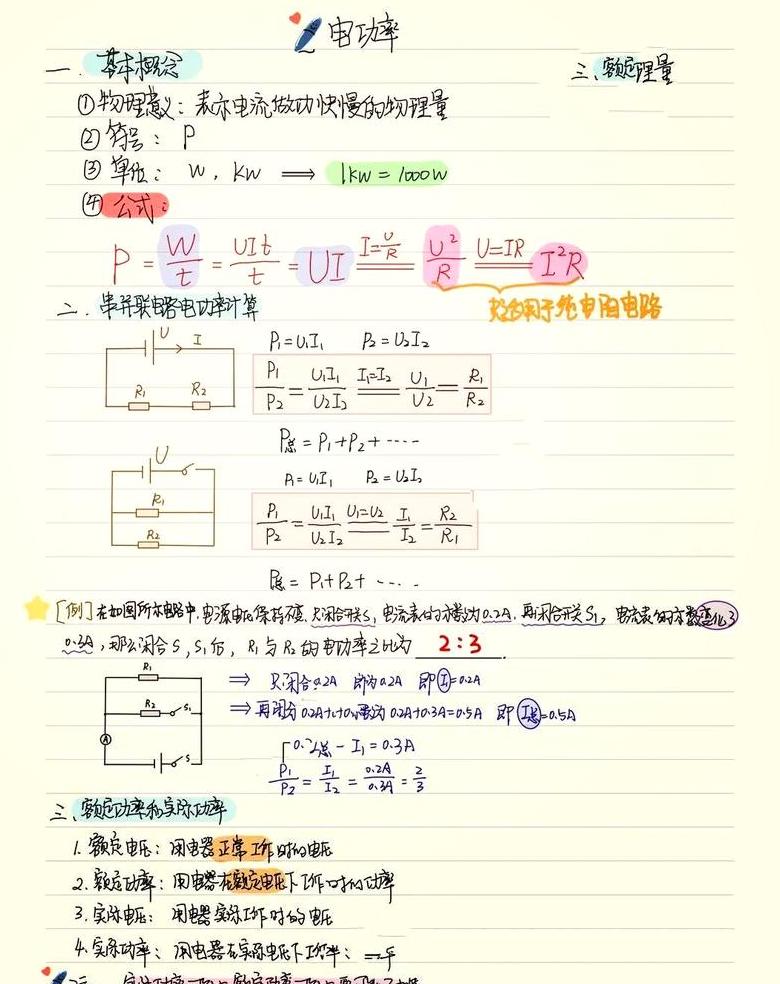 电功率
一. 基本概念
三、额定理量
①物理意义：表示电流做功快慢的物理量
②符号： P
③单位： W, KW ⟹ 1KW = 1000W
④公式：
P = W/t = UIt/t = UI I=U/R U²/R U=IR I²R
二. 串并联电路电功率计算
只适用于纯电阻电路
U I
R₁ R₂
P₁=U₁I₁ P₂=U₂I₂
P₁/P₂ = U₁I₁/U₂I₂ I₁=I₂ U₁/U₂ = R₁/R₂
P总 = P₁+P₂+····
U
R₁
R₂
P₁=U₁I₁ P₂=U₂I₂
P₁/P₂ = U₁I₁/U₂I₂ U₁=U₂ I₁/I₂ = R₂/R₁
P总 = P₁+P₂+ ····
[例]在如图所示电路中,电源电压保持不变,只闭合开关S,电流表的示数为0.2A,再闭合开关S₁,电流表的示数变化了
0.3A,那么闭合S,S₁后,R₁与R₂的电功率之比为 2:3.
R₁
R₂ S₁
A
S
⟹ 只闭合0.2A 即为0.2A 即I₁=0.2A
⟹ 再闭合 0.2A+0.3A=0.5A 即I总=0.5A
总 - I₁ = 0.3A
P₁/P₂ = I₁/I₂ = 0.2A/0.3A = 2/3
三、额定功率和实际功率
1. 额定电压：用电器正常工作时的电压
2. 额定功率：用电器在额定电压下工作时的功率
3. 实际电压：用电器实际工作时的电压
4. 实际功率：用电器在实际电压下工作率：